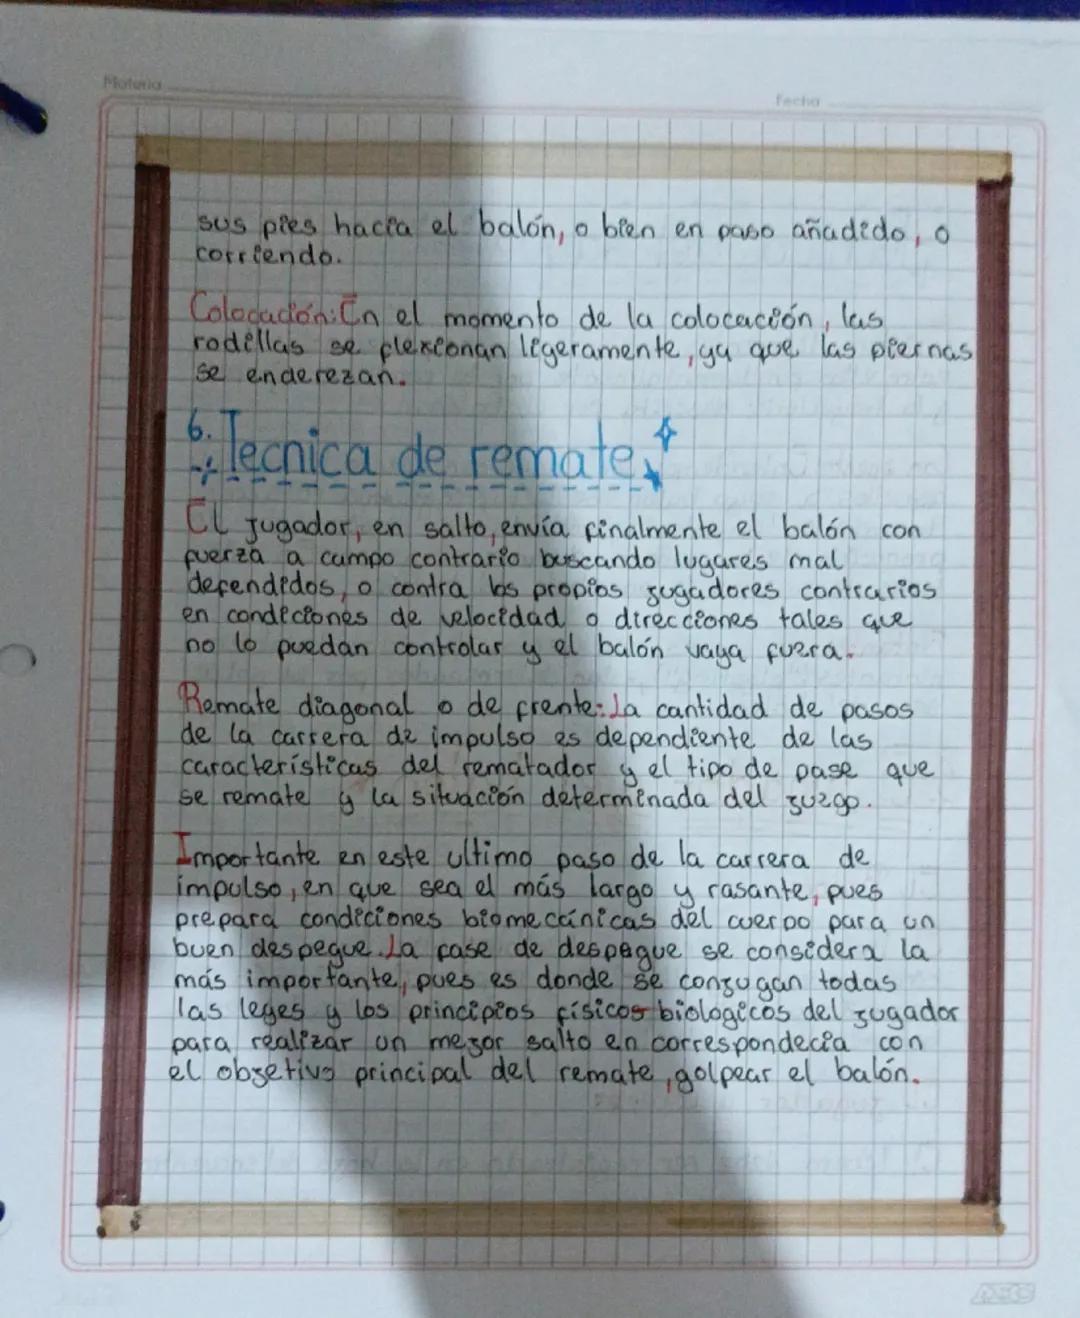 Materia
Fecha
sus pies hacia el balón, o bien en paso añadido, o
corriendo.
Colocación: En el momento de la colocación, las
rodillas se flexionan ligeramente, ya que las piernas
se enderezan.
6. Tecnica de remate
El jugador, en salto, envía finalmente el balón con
fuerza a campo contrario buscando lugares mal
defendidos, o contra los propios jugadores contrarios
en condiciones de velocidad o direcciones tales que
no lo puedan controlar y el balón vaya fuera.
Remate diagonal o de frente: La cantidad de pasos
de la carrera de impulso es dependiente de las
características del rematador y el tipo de pase que
se remate y la situación determinada del juego.
Importante en este ultimo paso de la carrera de
impulso, en que sea el más largo y rasante, pues
prepara condiciones biomecánicas del cuerpo para un
buen despegue. La fase de despegue se considera la
más importante, pues es donde se conjugan todas
las leyes y los principios físicos biologicos del jugador
para realizar un mejor salto en correspondecia con
el objetivo principal del remate, golpear el balón.